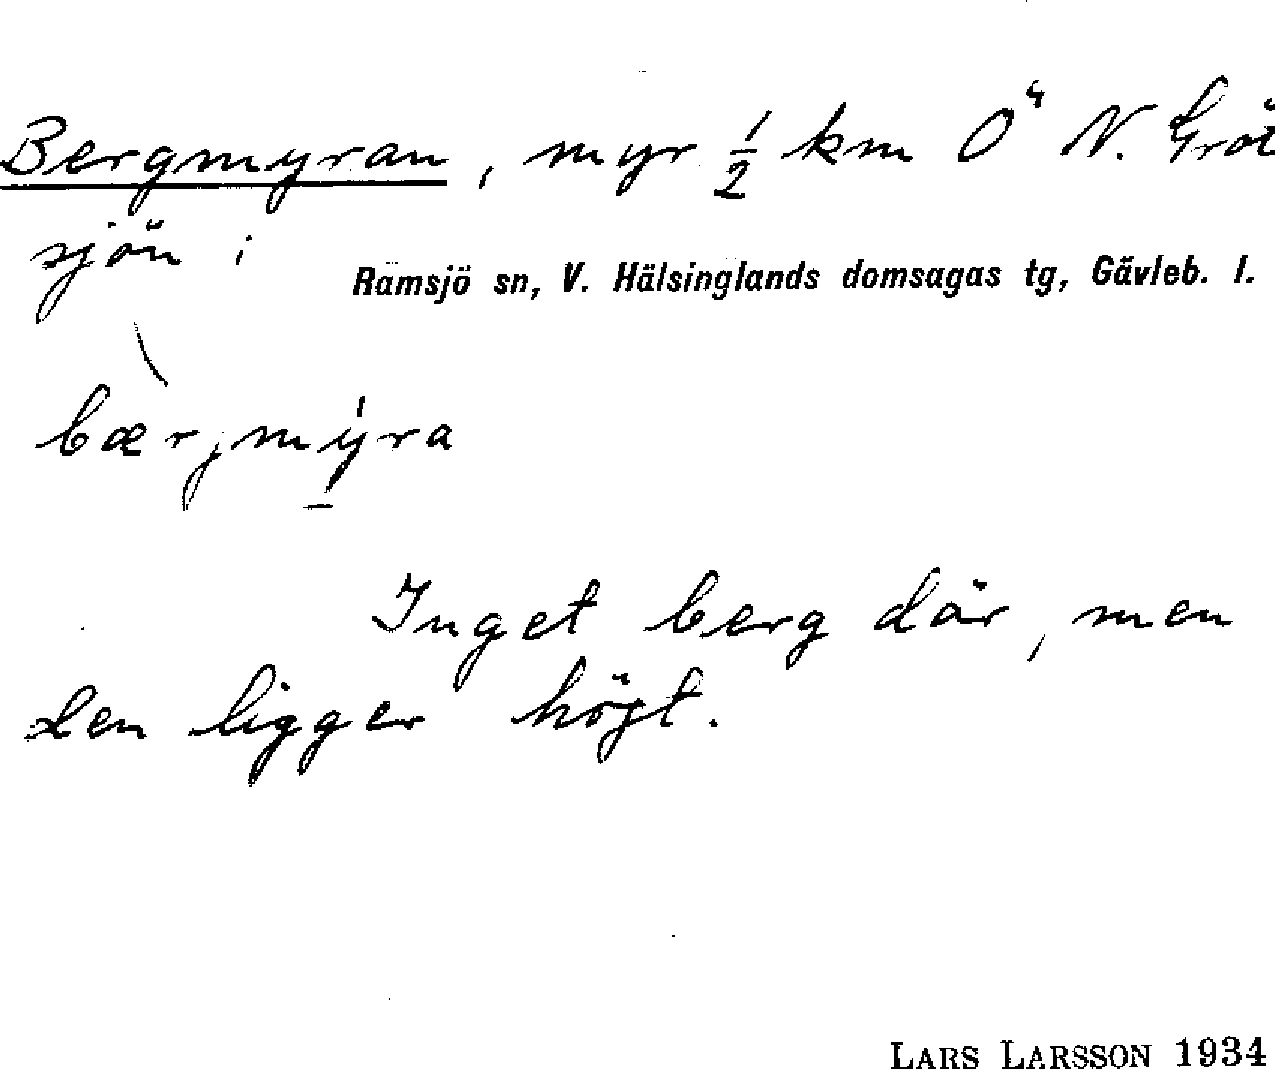 Bergmyran, myr ½ km Ö N. Gröt
sjön i
Ramsjö sn, V. Hälsinglands domsagas tg, Gävleb. l.
bærjmyra
Inget berg där, men
den ligger högt.
LARS LARSSON 1934